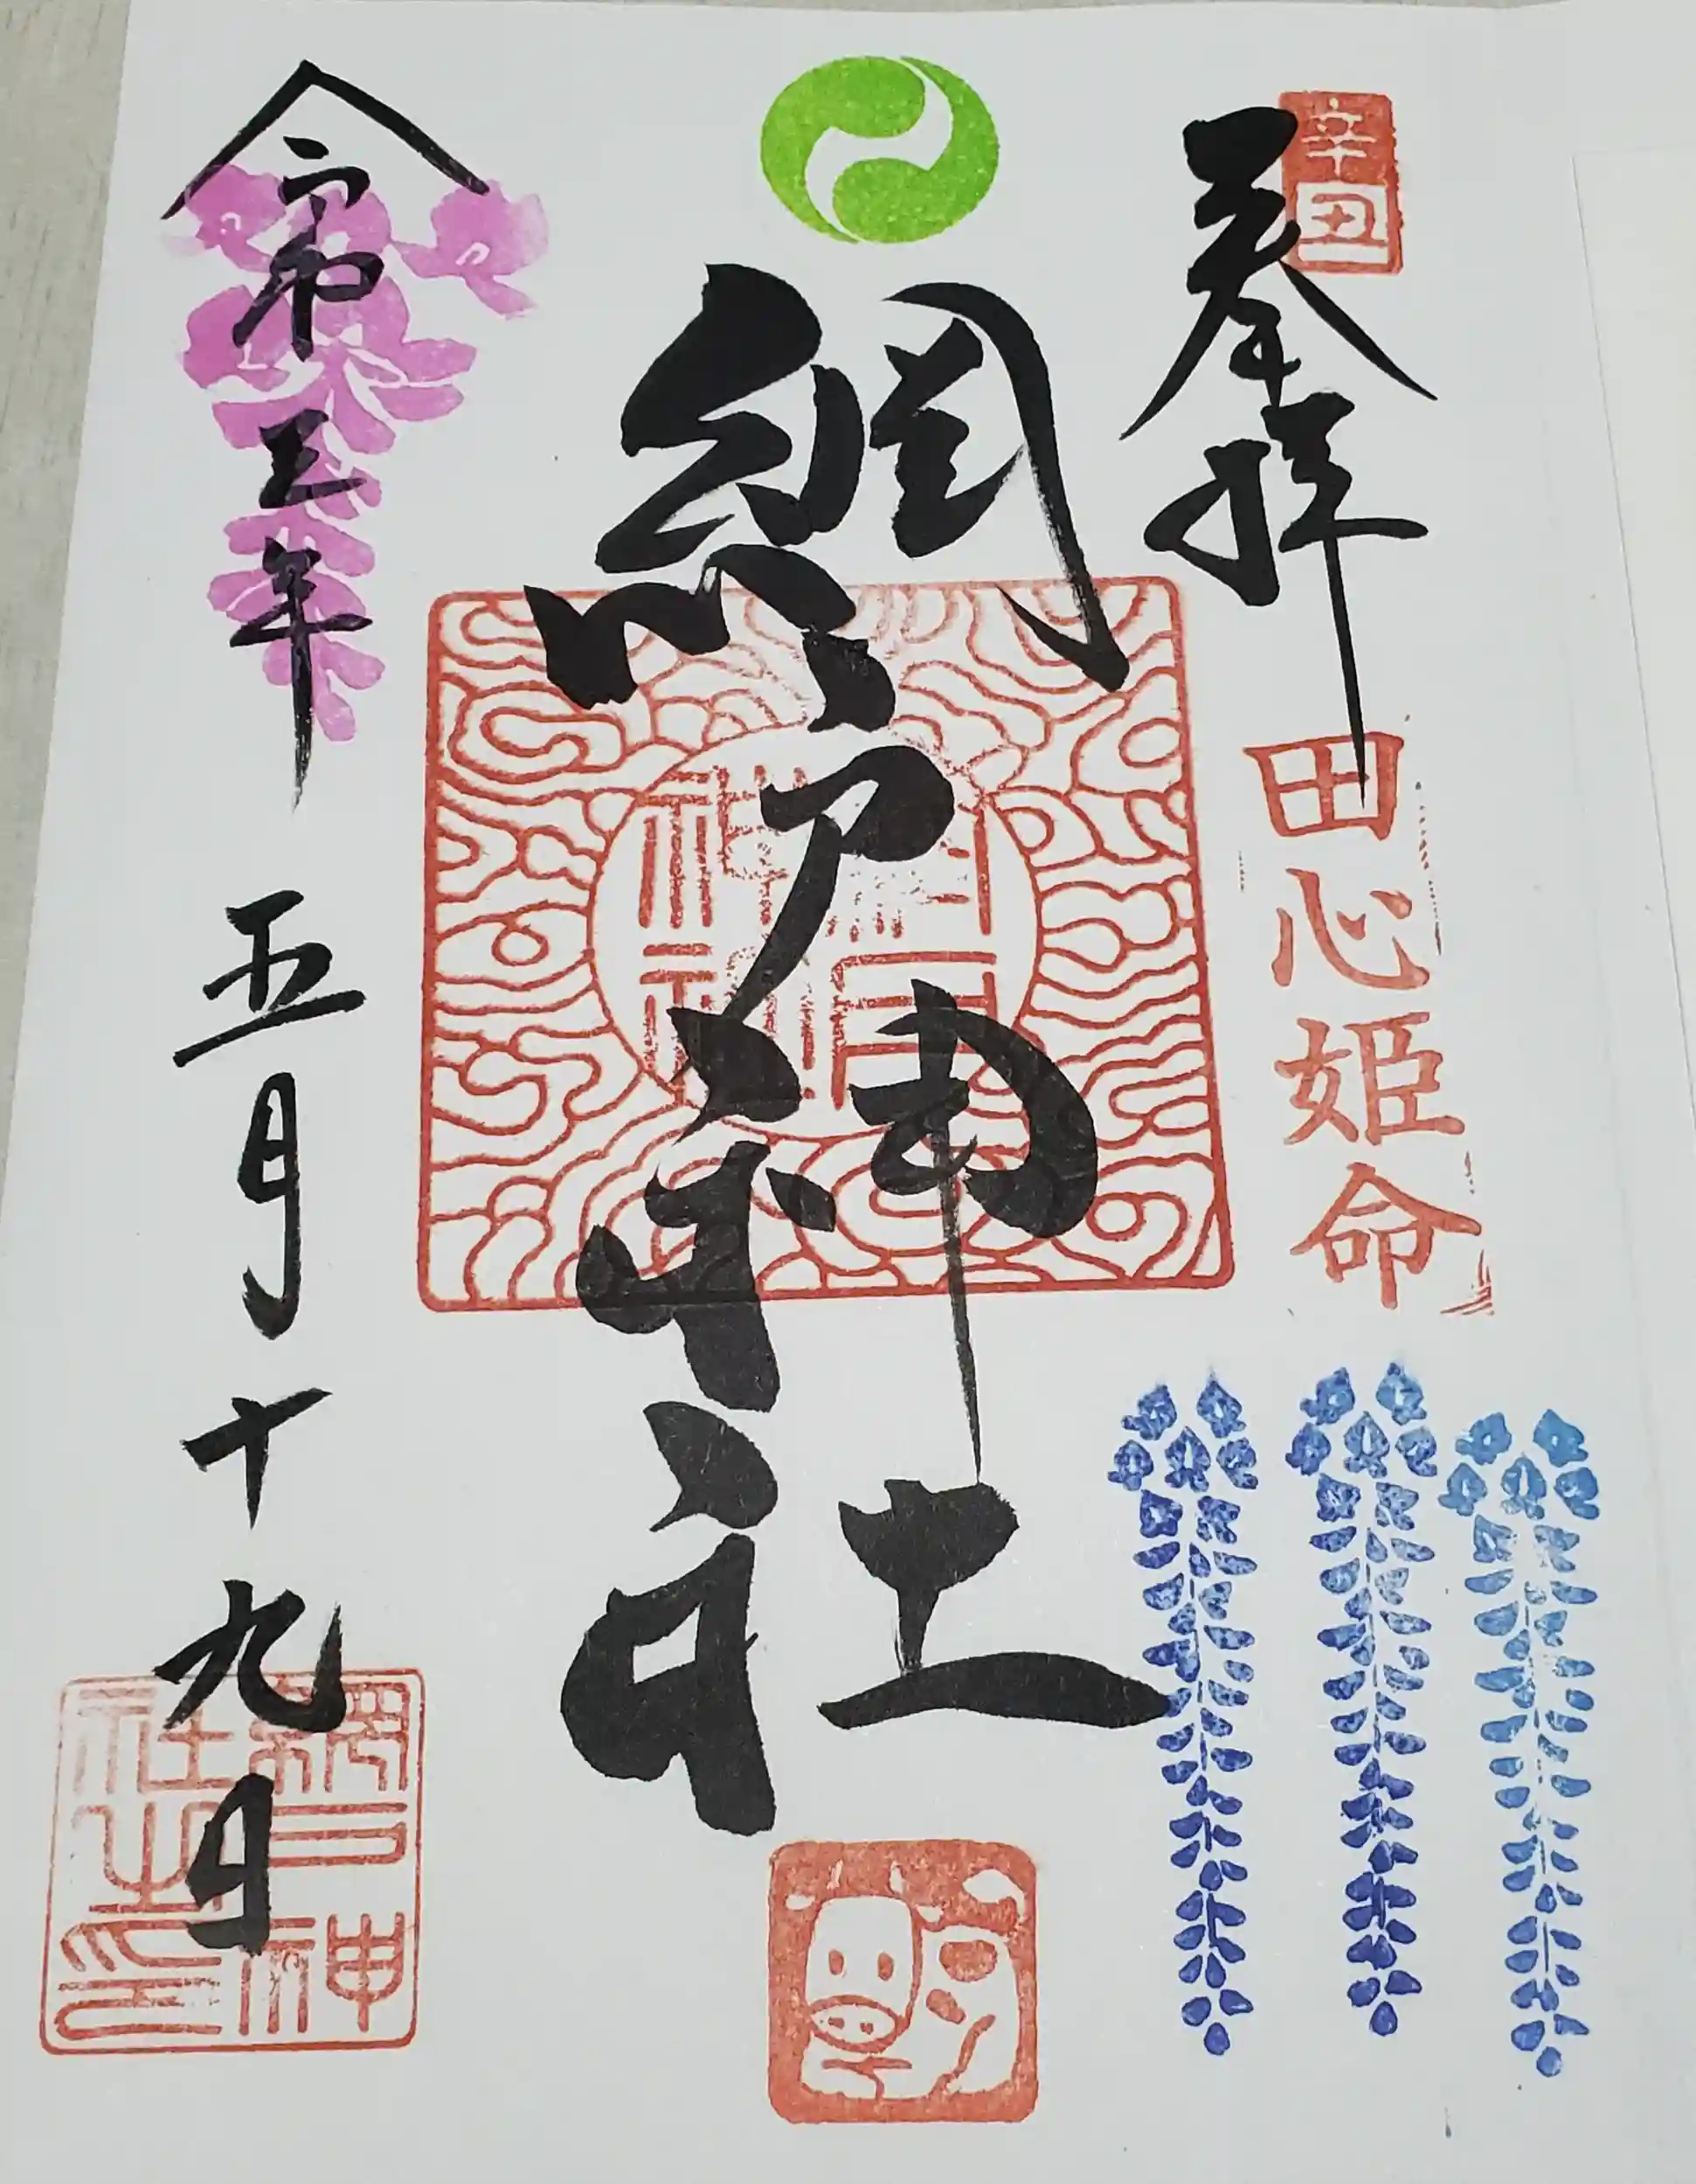 辛丑
奉拝
田心姫命
網戸神社
令和三年五月十九日
網戸神
社之印